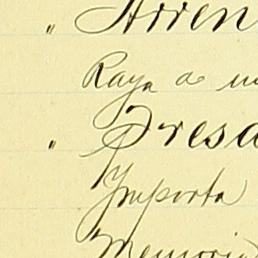 " Arren
Raya a
" Presa
Importa
Memoria